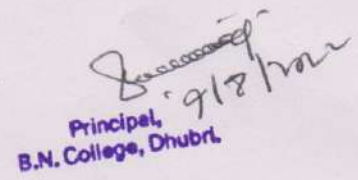 9/8/2022
Principal,
B.N. College, Dhubri.